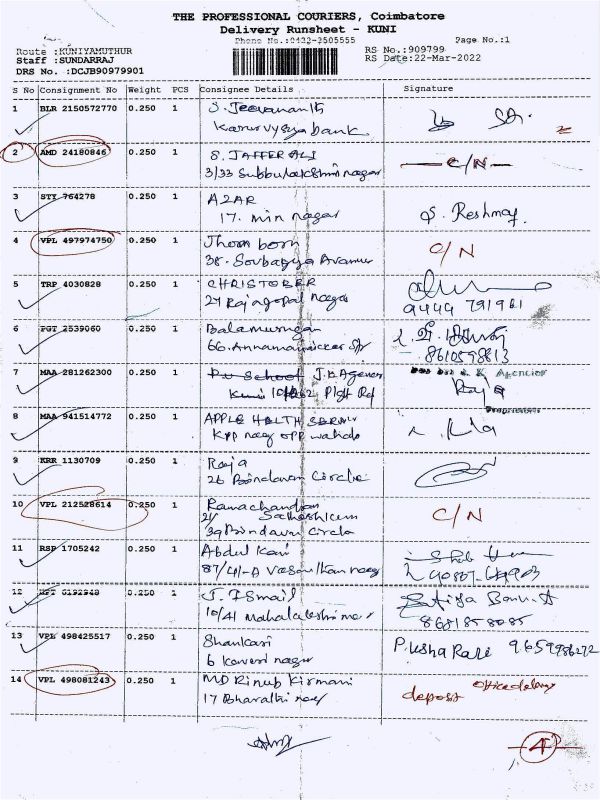 THE PROFESSIONAL COURIERS, Coimbatore
Delivery Runsheet - KUNI
Phone No.:0422-3505555 Page No.:1
Route :KUNIYAMUTHUR RS No.:909799
Staff :SUNDARRAJ RS Date:22-Mar-2022
DRS No. :DCJB90979901
S No Consignment No Weight PCS Consignee Details Signature
1 BLR 2150572770 0.250 1 S. Jeevananth
Karur vysya bank
2 AMD 24180846 0.250 1 S. JAFFER ALI C/N
3/33 Subbulakshmi nagar
3 STY 764278 0.250 1 AZAR S. Reshma
17. Min nagar
4 VPL 497974750 0.250 1 Jhom born C/N
38. Sovbagya
5 TRP 4030828 0.250 1 CHRISTOBER
27 Rajagopal nagar 9444 791961
6 PGT 2539060 0.250 1 Balamurugan
66. Annamanaicker 8610598813
7 MAA 281262300 0.250 1 J.K Agencies
Raja
Proprietor
8 MAA 941514772 0.250 1 APPLE HALTH
KPP nag opp
9 KRR 1130709 0.250 1 Raja
26 Brindavan Circle
10 VPL 212528614 0.250 1 Ramachandran C/N
39 Brindavan Circle
11 RSP 1705242 0.250 1 Abdul Kani
87/41-A Vasanthan nag
12 0.250 1 J. Ismail
10/41 Mahalakshmi nar 8681858085
13 VPL 498425517 0.250 1 Shankari P. Usha Rani 9659986272
6 Kaveri nagar
14 VPL 498081243 0.250 1 MD Rinub Kirmani office delivery
17 Bharathi nag deposit